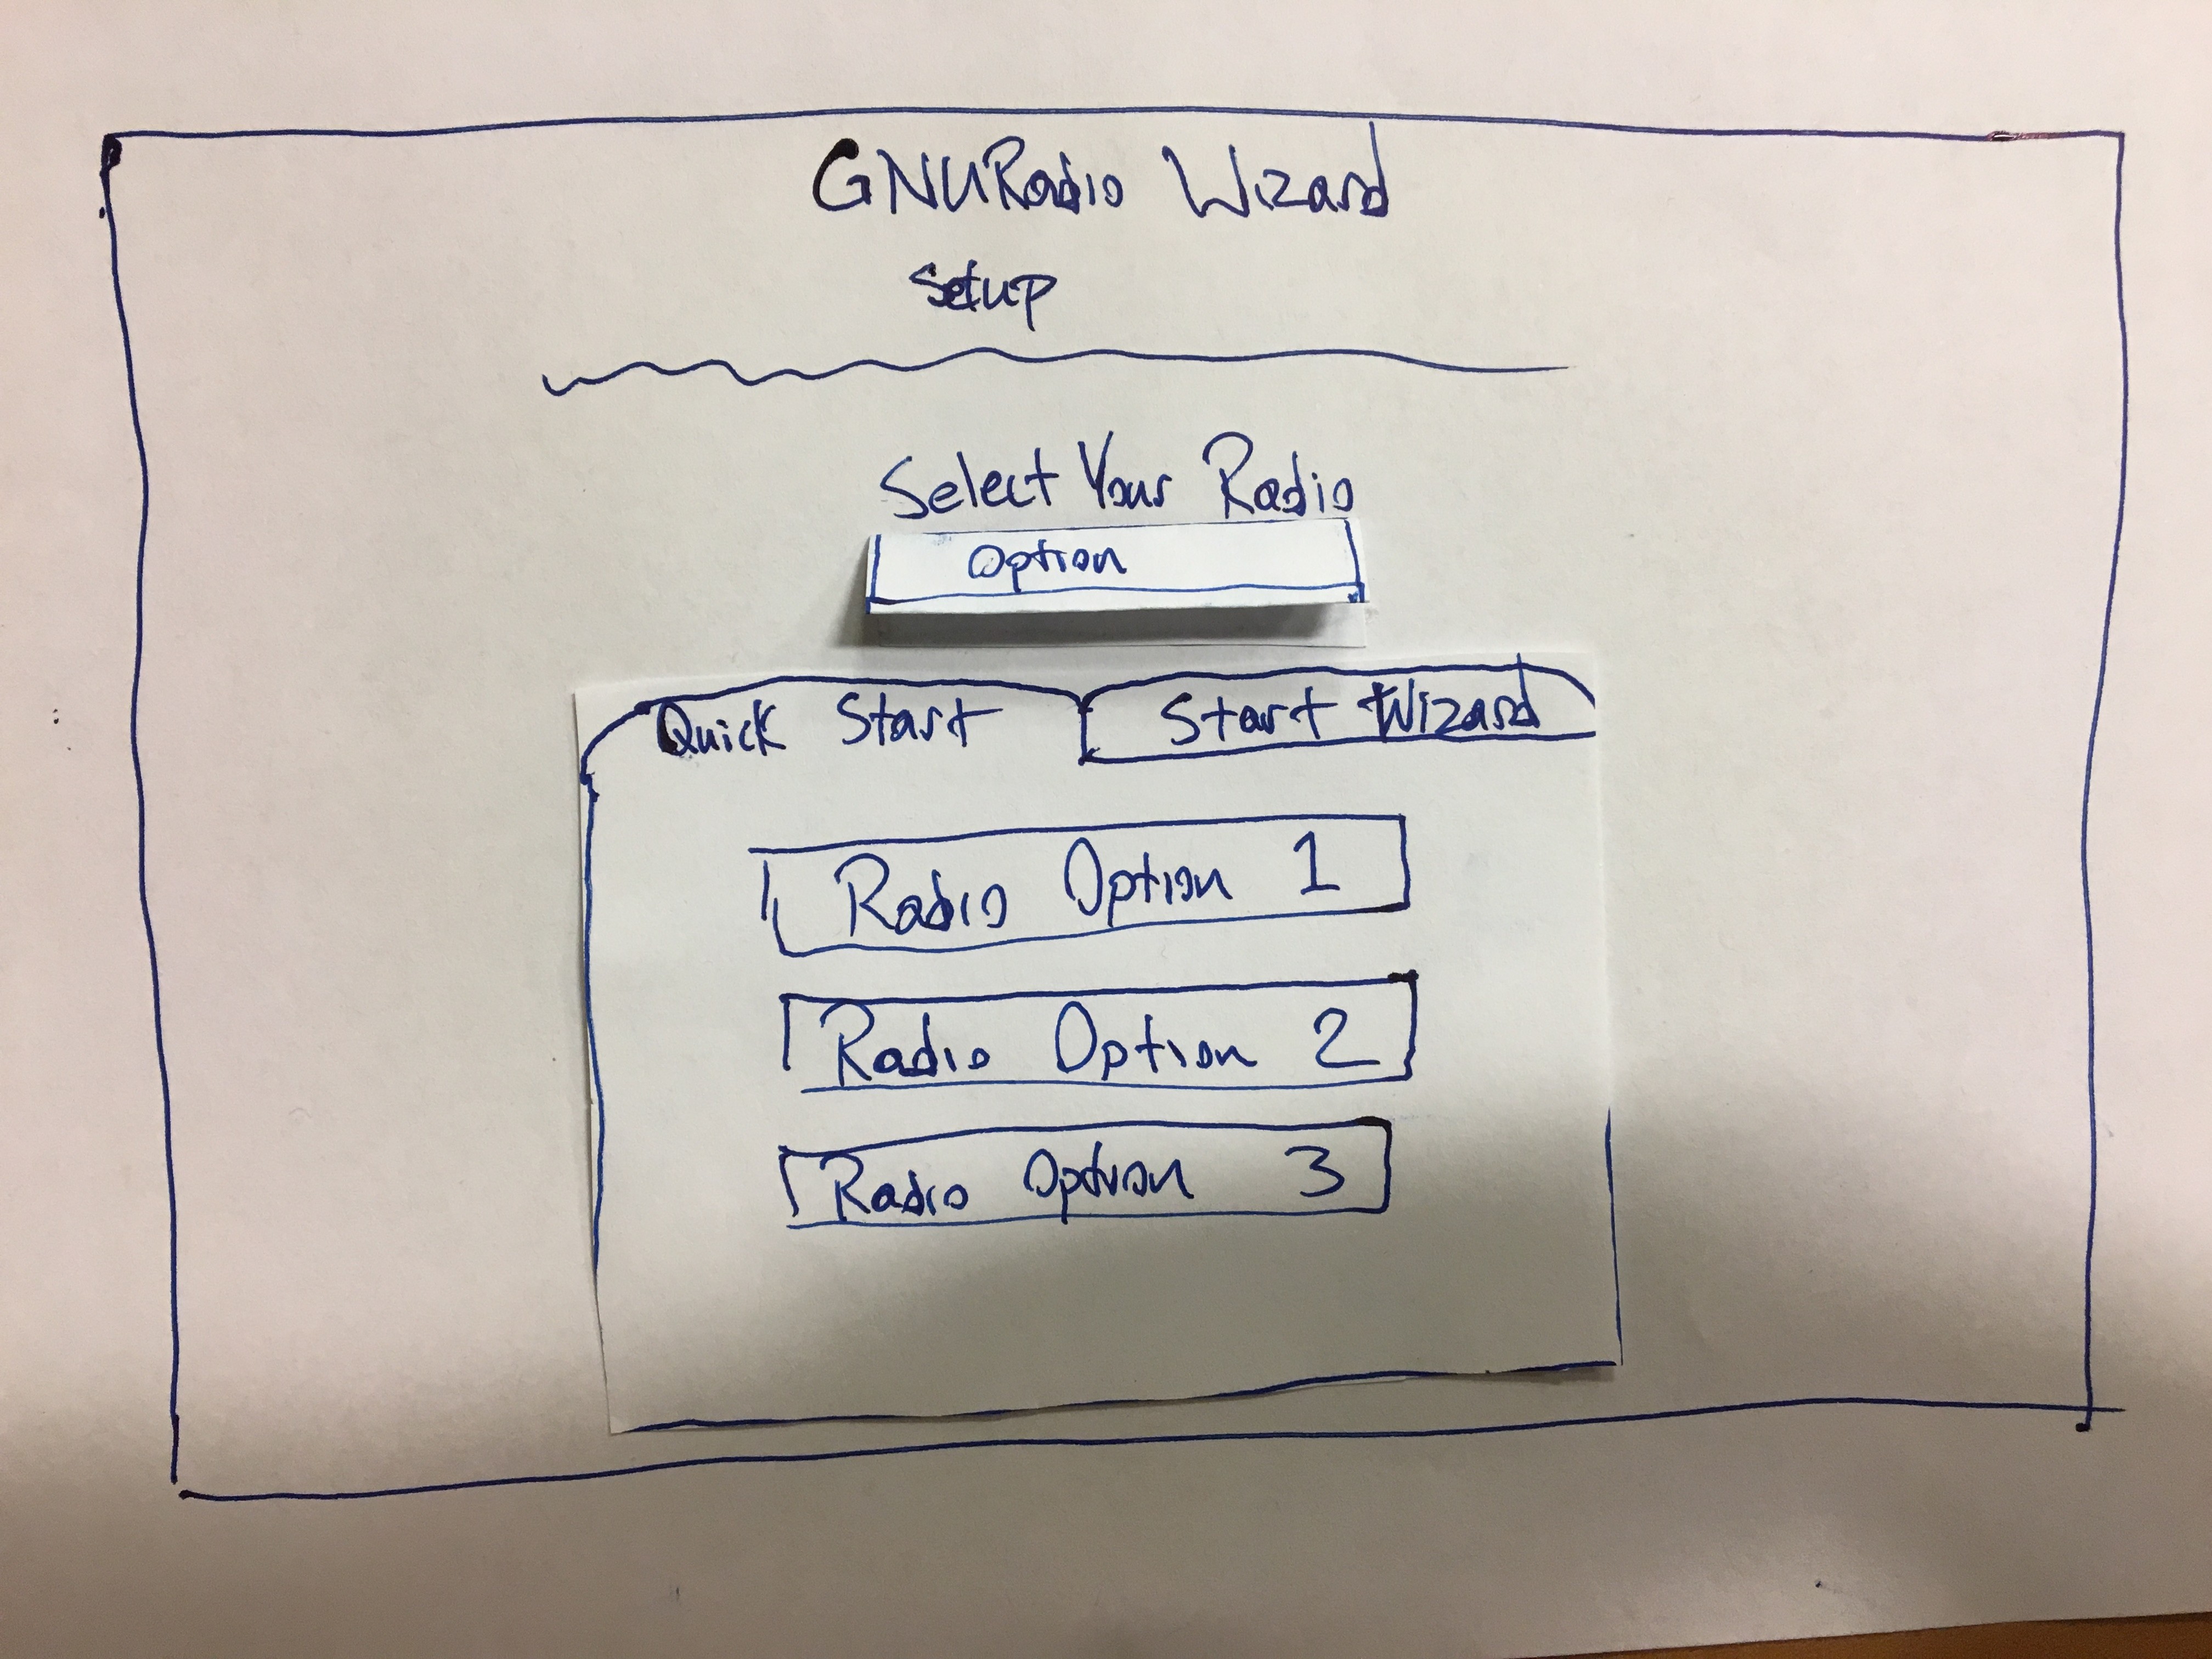 GNURadio Wizard
Setup
Select Your Radio
Option
Quick Start Start Wizard
Radio Option 1
Radio Option 2
Radio Option 3